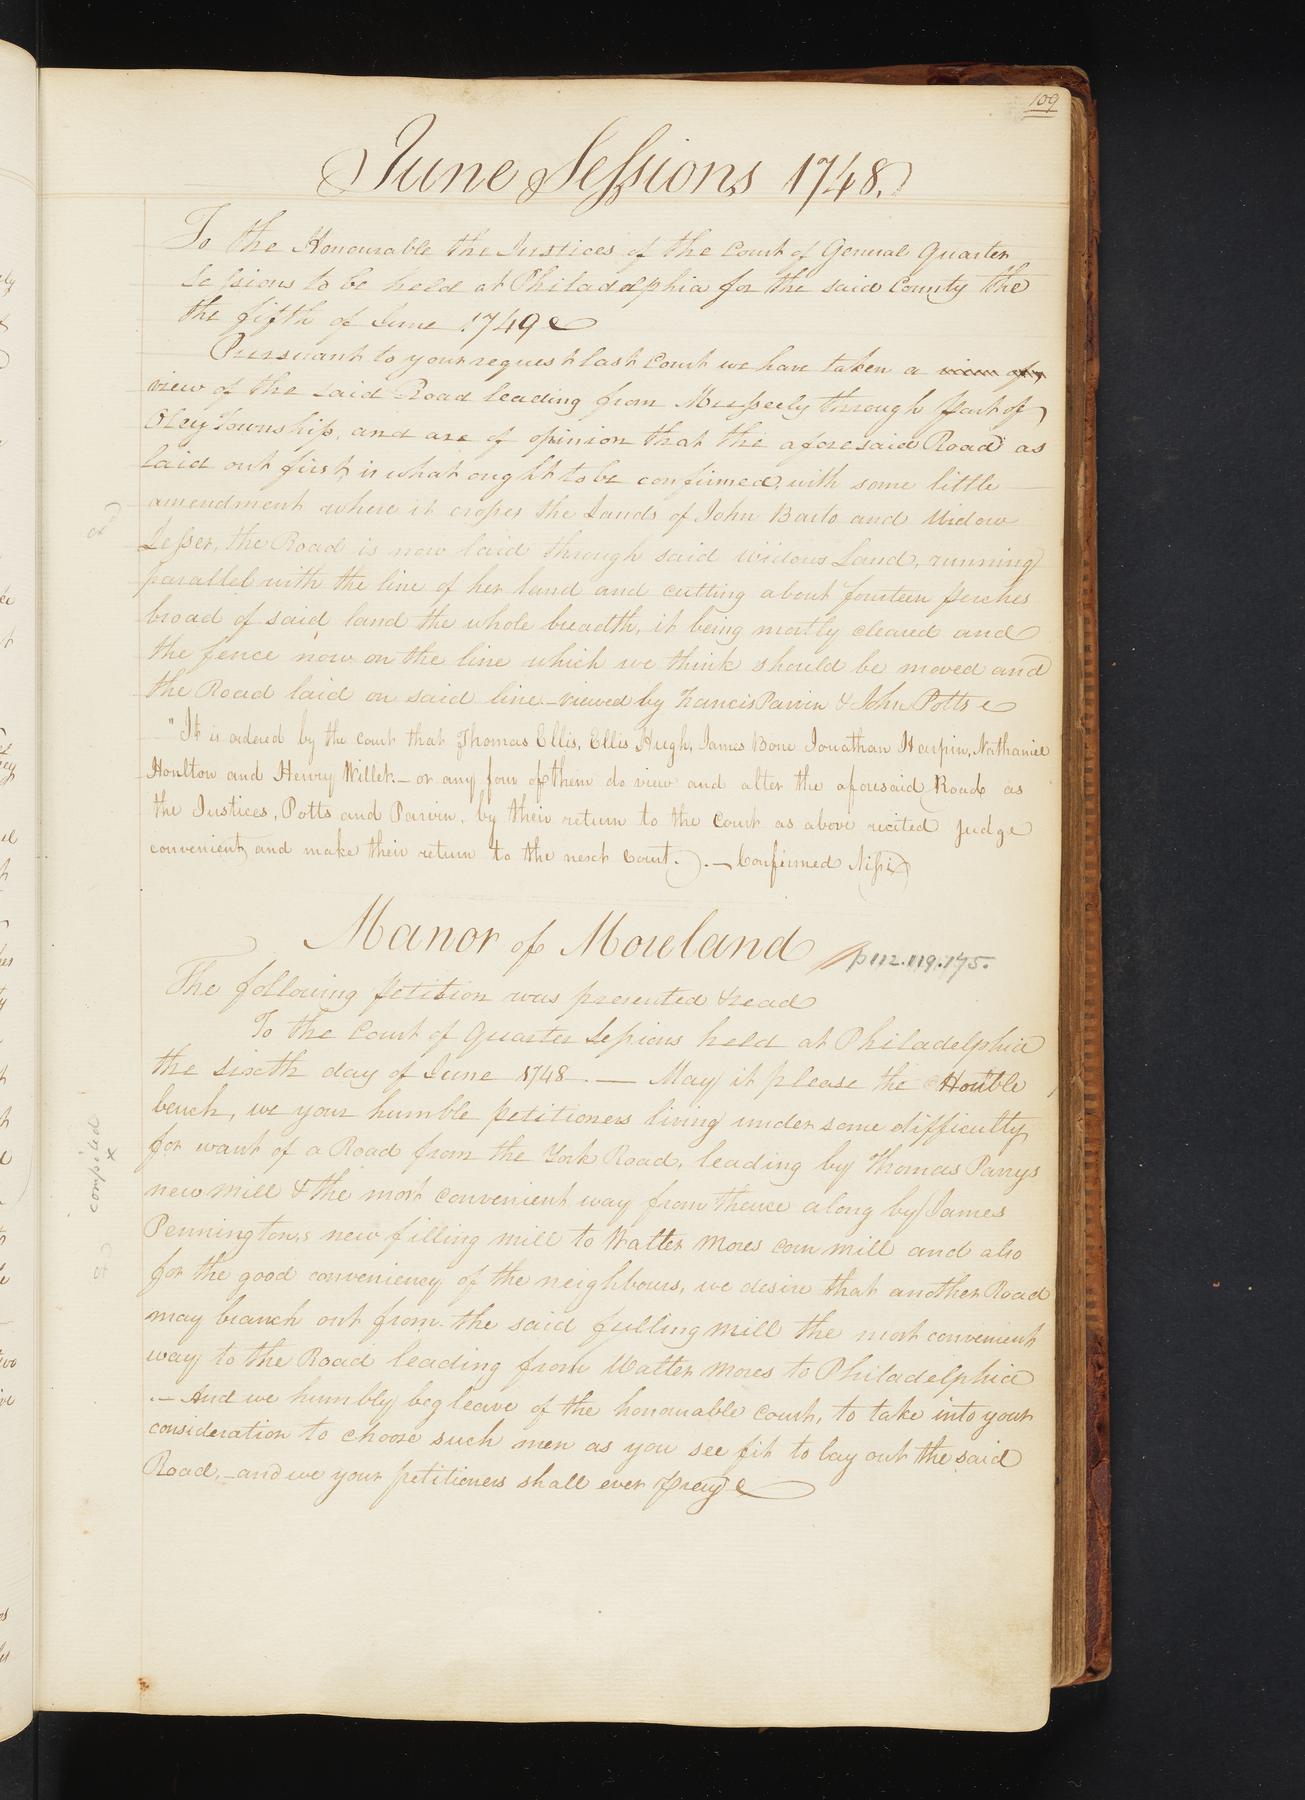 109
June Sessions 1748.
To the Honourable the Justices of the Court of General Quarter
Sessions to be held at Philadelphia for the said County the
the fifth of June 1749
Pursuant to your request last Court we have taken a view of
view of the said Road leading from through Part of
Oley Township, and are of opinion that the aforesaid Road as
laid out first, is what ought to be confirmed, with some little
amendment where it crosses the Lands of John Barto and Widow
Lesser, the Road is now laid through said widows Land, running
parallel with the line of her land and cutting about fourteen perches
broad of said land the whole breadth, it being mostly cleared and
the fence now on the line which we think should be moved and
the Road laid on said line - viewed by Francis Parvin & John Potts
"It is ordered by the court that Thomas Ellis, Ellis Hugh, James Bone Jonathan Hearpin, Nathaniel
Houlton and Henry Willet. - or any four of them do view and alter the aforesaid Road as
the Justices, Potts and Parvin, by their return to the Court as above recited Judge
convenient, and make their return to the next Court. - Confirmed Nisi
Manor of Moreland p 112.119.175.
The following Petition was presented & read
To the Court of Quarter Sessions held at Philadelphia
the sixth day of June 1748. — May it please the Honble
bench, we your humble petitioners living under some difficulty
for want of a Road from the York Road, leading by Thomas Parrys
new mill & the most convenient way from thence along by James
Penningtons new filling mill to Walter Mores corn mill and also
for the good conveniency of the neighbours, we desire that another Road
may branch out from the said fulling Mill the most convenient
way to the Road leading from Walter Mores to Philadelphia
- And we humbly beg leave of the honourable Court, to take into your
consideration to choose such men as you see fit to lay out the said
Road, - and we your petitioners shall ever pray
compiled
x